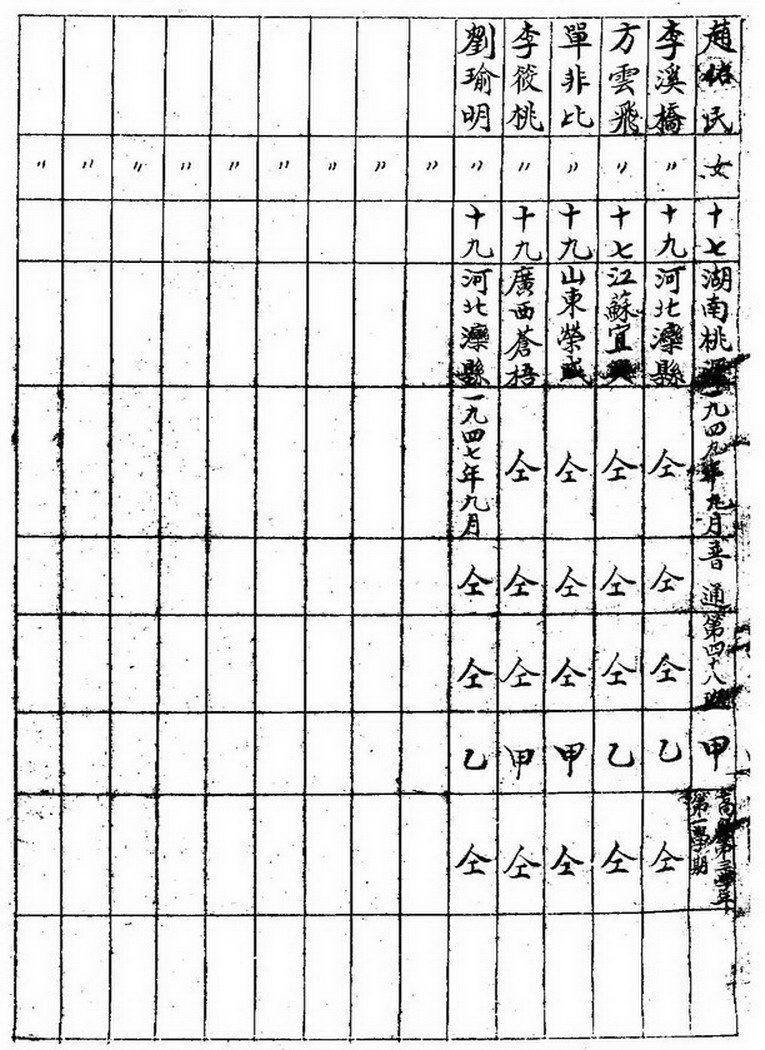 趙 民 女 十七 湖南桃源 一九四九年九月 普通 第四十八班 甲 高級第三學年第一學期
李溪橋 〃 十九 河北灤縣 仝 仝 仝 乙 仝
方雲飛 〃 十七 江蘇宜興 仝 仝 仝 乙 仝
單非比 〃 十九 山東榮成 仝 仝 仝 甲 仝
李筱桃 〃 十九 廣西蒼梧 仝 仝 仝 甲 仝
劉瑜明 〃 十九 河北灤縣 一九四七年九月 仝 仝 乙 仝
〃
〃
〃
〃
〃
〃
〃
〃
〃